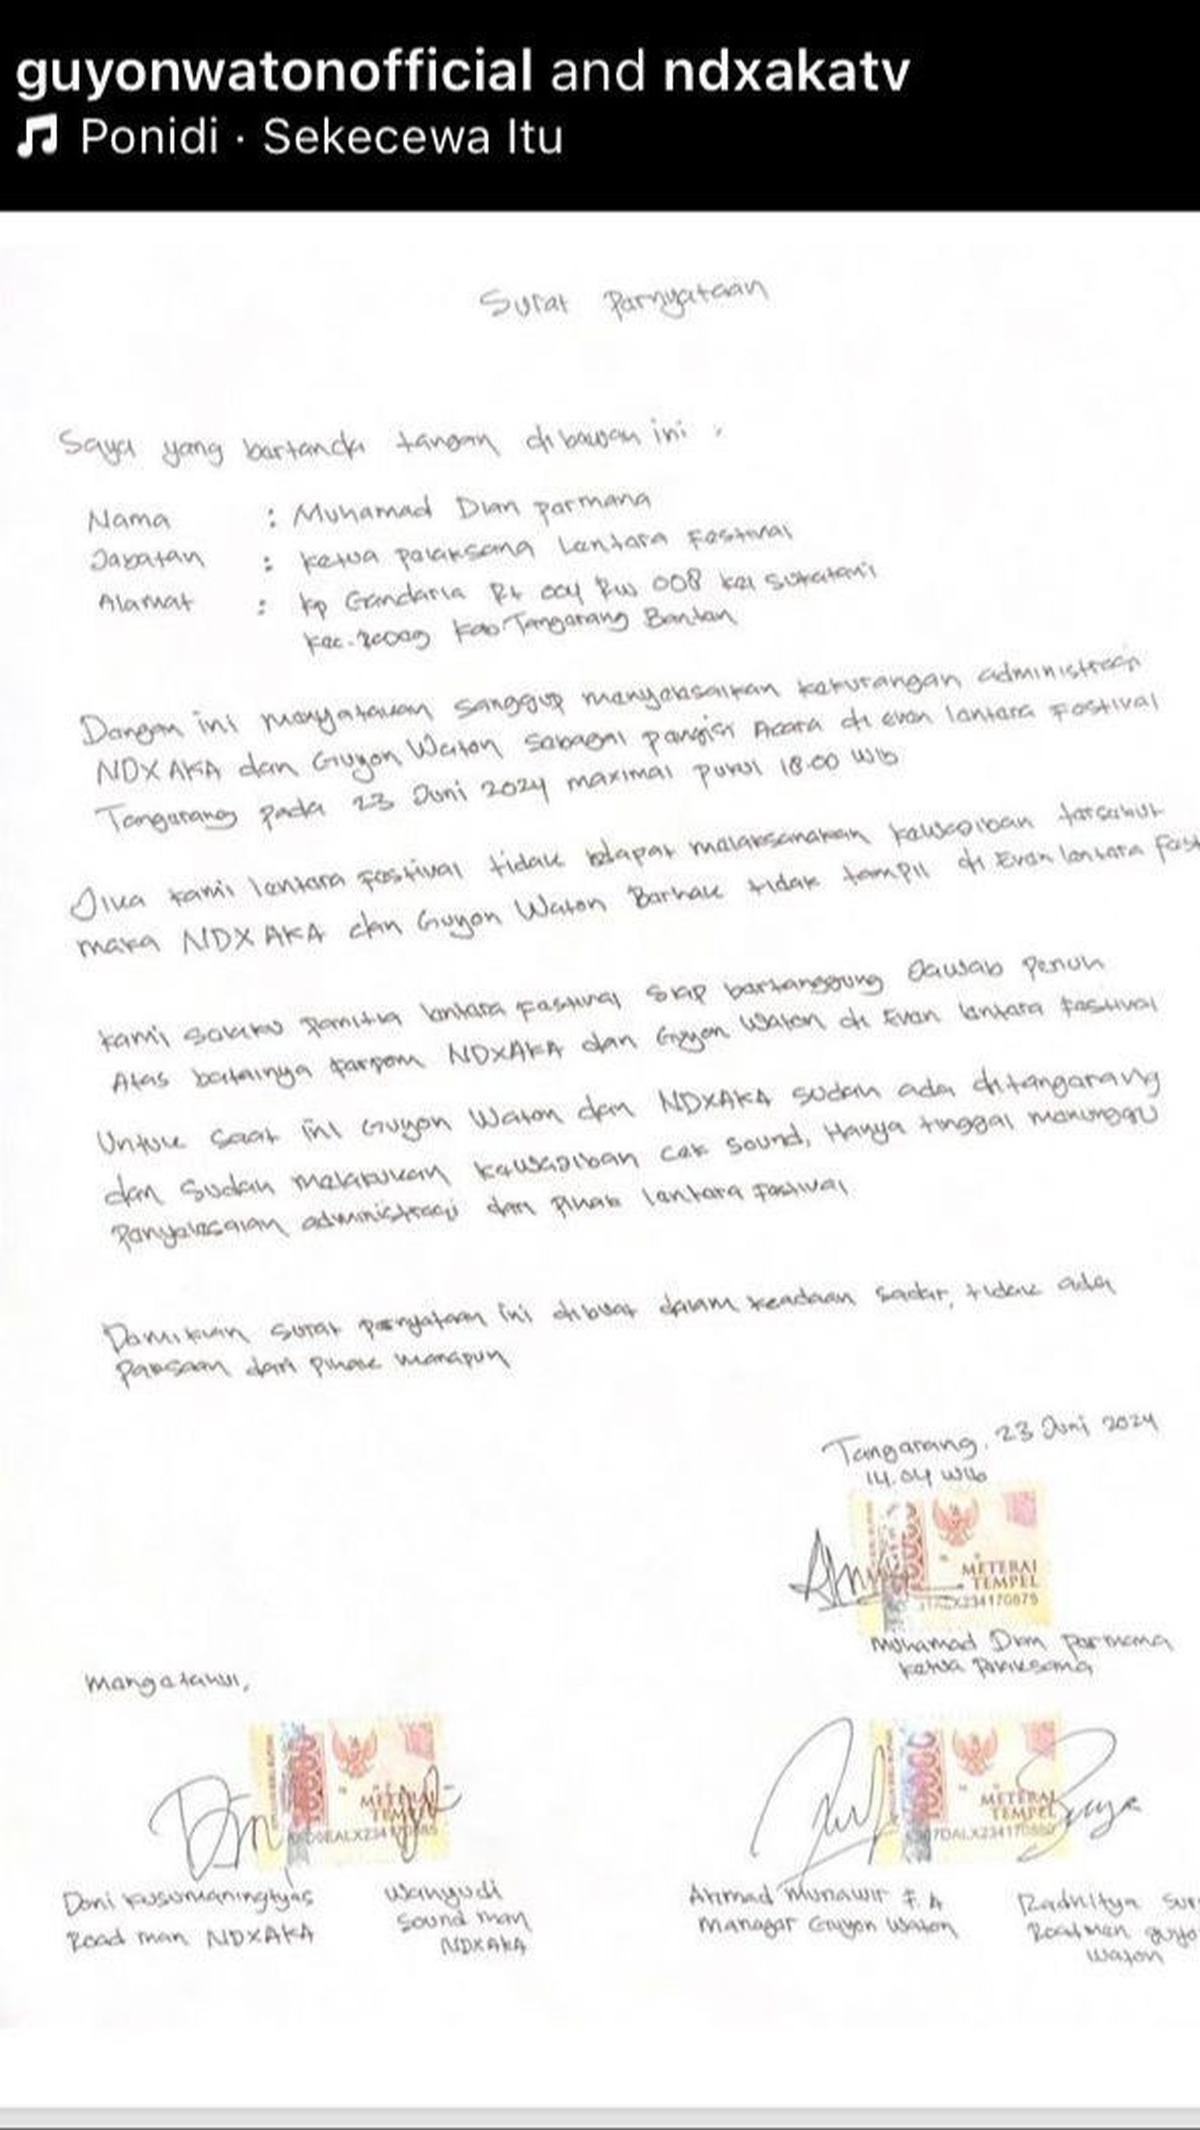 guyonwatonofficial and ndxakatv
Ponidi · Sekecewa Itu
Surat Parnyataan
Saya yang bartanda tangan dibawah ini :
Nama : Muhamad Dian parmana
Jabatan : Ketua palaksana Lantara Fastival
Alamat : Kp Gandaria Rt 004 Rw 008 kel Sukatani
Kec. Kab Tangarang Bantan
Dangan ini manyatakan sanggup manyalasaikan kakurangan administrasi
NDX AKA dan Guyon Waton sabagai pangisi Acara di evan lantara Fastival
Tangarang pada 23 Juni 2024 maximal pukul 18.00 Wib
Jika kami lantara Fastival tidak dapat malaksanakan kawajiban tarsabut
maka NDX AKA dan Guyon Waton Barhak tidak tampil di Evan lantara Fast
Kami salaku Panitia lantara Fastival siap bartanggung Jawab Panuh
Atas batalnya parpom NDXAKA dan Guyon Waton di Evan lantara Fastival
Untuk saat ini Guyon Waton dan NDXAKA sudah ada ditangarang
dan sudah malakukan kawajiban cak sound, Hanya tinggal manunggu
Panyalasaian administrasi dari Pihak lantara Fastival
Damikian surat parnyataan ini dibuat dalam keadaan sadar, tidak ada
Paksaan dari pihak manapun
Tangarang, 23 Juni 2024
14.04 Wib
METERAI
TEMPEL
Muhamad Dian parmana
Katua
Mangatahui,
METERAI
TEMPEL
METERAI
TEMPEL
Doni Kusumaningtyas
Road man NDXAKA
Wahyudi
Sound man
NDXAKA
Ahmad Munawir F.A
Manager Guyon Waton
Radhitya Sur
Roadman guyo
Waton